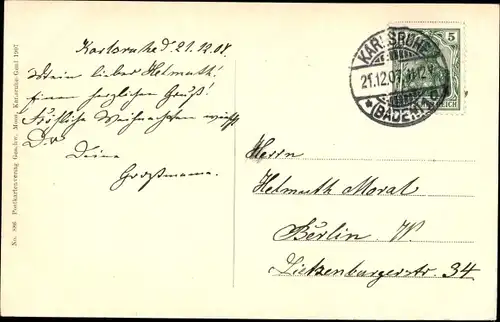 Karlsruhe d. 21.12.07.
Mein lieber Helmuth!
Einen herzlichen Gruß!
Fröhliche Weihnachten wünscht
Dir
Deine
Großmama.
No. 886 Postkartenverlag Geschw. Moos, Karlsruhe-Gand 1907
KARLSRUHE
21.12.07
(BADEN)
5
REICH
Herrn
Helmuth Moral
Berlin. W.
Lietzenburgerstr. 34